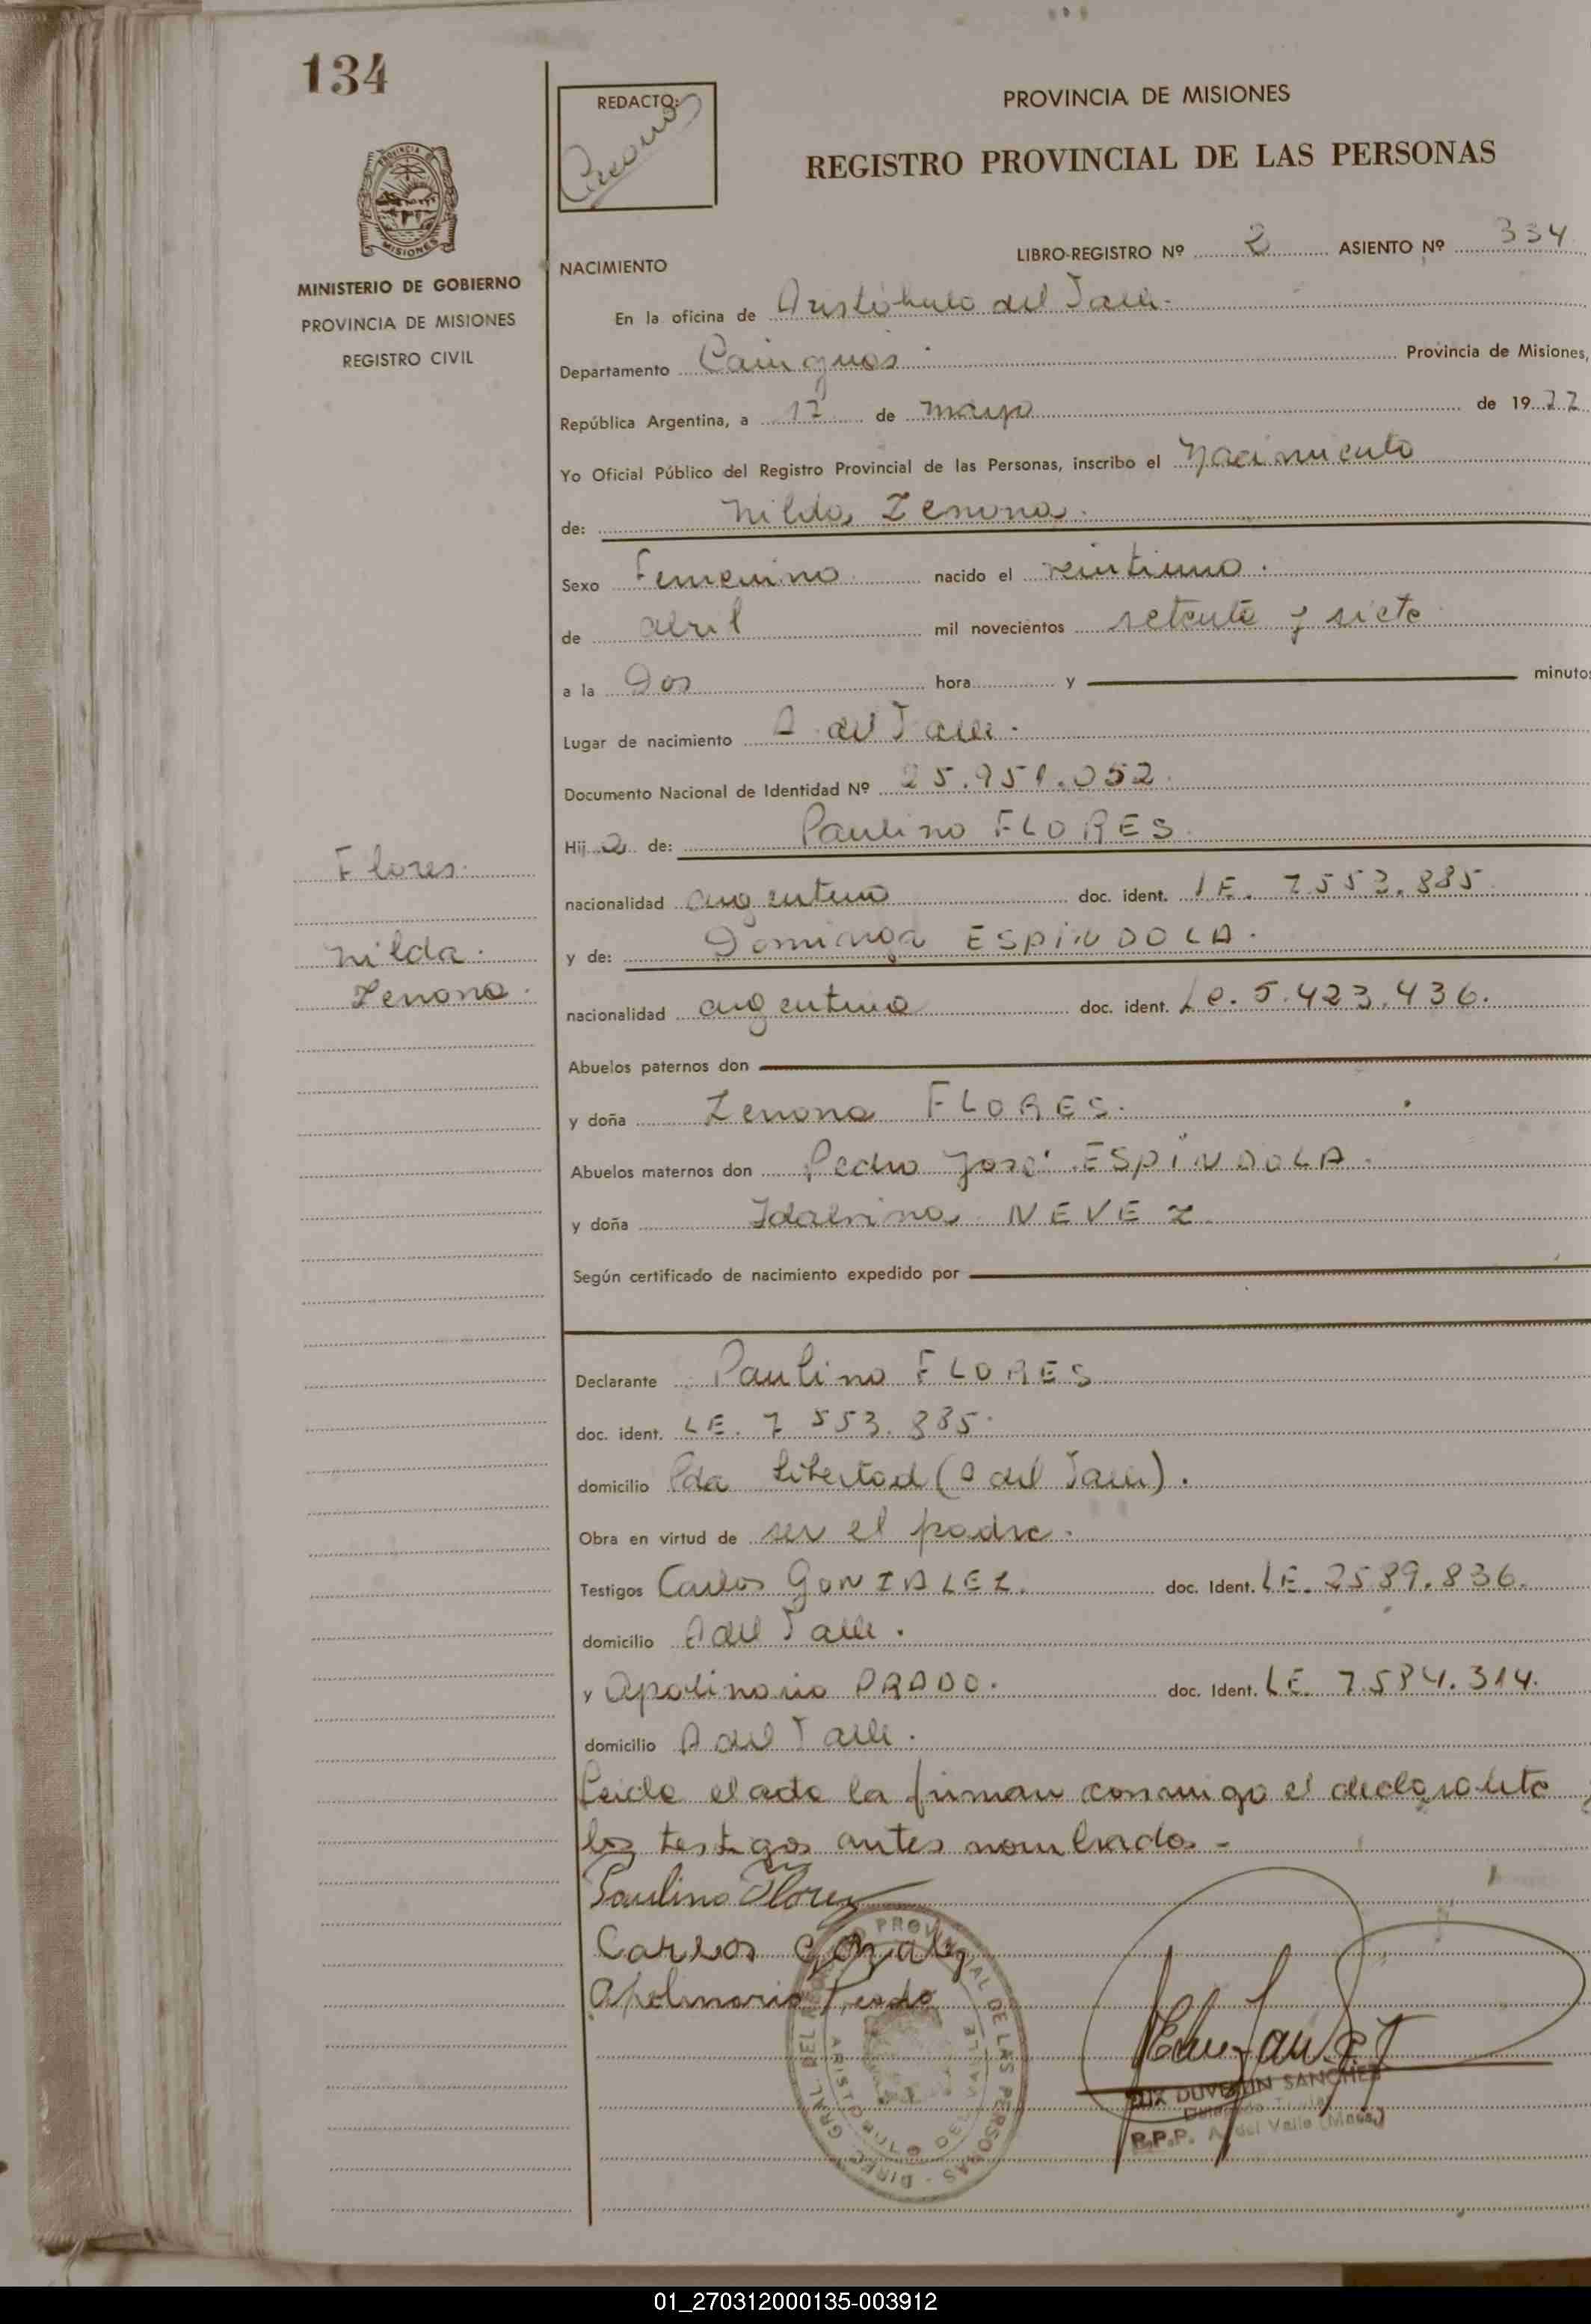 134
REDACTO:
PROVINCIA DE MISIONES
REGISTRO PROVINCIAL DE LAS PERSONAS
LIBRO-REGISTRO Nº 2 ASIENTO Nº 334
MINISTERIO DE GOBIERNO
PROVINCIA DE MISIONES
REGISTRO CIVIL
NACIMIENTO
En la oficina de Aristóbulo del Valle.
Departamento Cainguas. Provincia de Misiones,
República Argentina, a 17 de mayo de 1977
Yo Oficial Público del Registro Provincial de las Personas, inscribo el Nacimiento
de: Nilda Zenona.
Sexo Femenino. nacido el veintiuno.
de abril mil novecientos setenta y siete
a la Dos hora y minutos
Lugar de nacimiento A. del Valle.
Documento Nacional de Identidad Nº 25.951.052.
Hij a de: Paulino FLORES.
nacionalidad argentino doc. ident. LE. 7553.885
y de: Dominga ESPINDOLA.
nacionalidad argentina doc. ident. Lc. 5.423.436.
Flores.
Nilda.
Zenona.
Abuelos paternos don
y doña Zenona FLORES.
Abuelos maternos don Pedro José ESPINDOLA.
y doña Idalvina NEVEZ
Según certificado de nacimiento expedido por
Declarante Paulino FLORES
doc. ident. LE. 7 553.885.
domicilio Pda Libertad (A del Valle).
Obra en virtud de ser el padre.
Testigos Carlos GONZALEZ. doc. Ident. LE. 2589.836.
domicilio A del Valle.
y Apolinario PRADO. doc. Ident. LE. 7.584.314.
domicilio A del Valle.
Leida el acta la firman conmigo el declarante y
los testigos antes nombrados.-
Paulino Flores
Carlos Gonzalez
Apolinario Prado
DIREC. GRAL. DEL REGISTRO PROVINCIAL DE LAS PERSONAS
ARISTOBULO DEL VALLE
DUVERLIN SANCHEZ
Delegado Titular
R.P.P. A. del Valle (Mnes.)
01_270312000135-003912